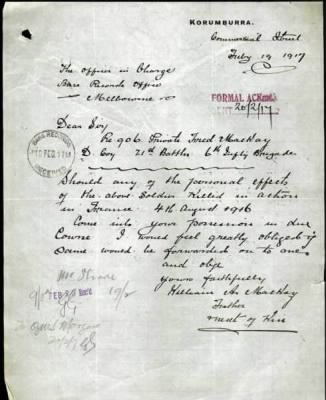 KORUMBURRA.
Commercial Street
Feby 19 1917
The Officer in Charge
Base Records Office
Melbourne
FORMAL ACK
20/2/17
Dear Sir
Re 906 Private Fred MacKay
D. Coy 21st Battln 6th Infty Brigade
BASE RECORDS
FEB 1917
RECEIVED
Should any of the personal effects
of the above Soldier Killed in action
in France 4th August 1916
Come into your possession in due
Course I would feel greatly obliged if
same would be forwarded on to me
and oblige
yours faithfully
William A. MacKay
Father
next of Kin
FEB
19/2
20/2/17